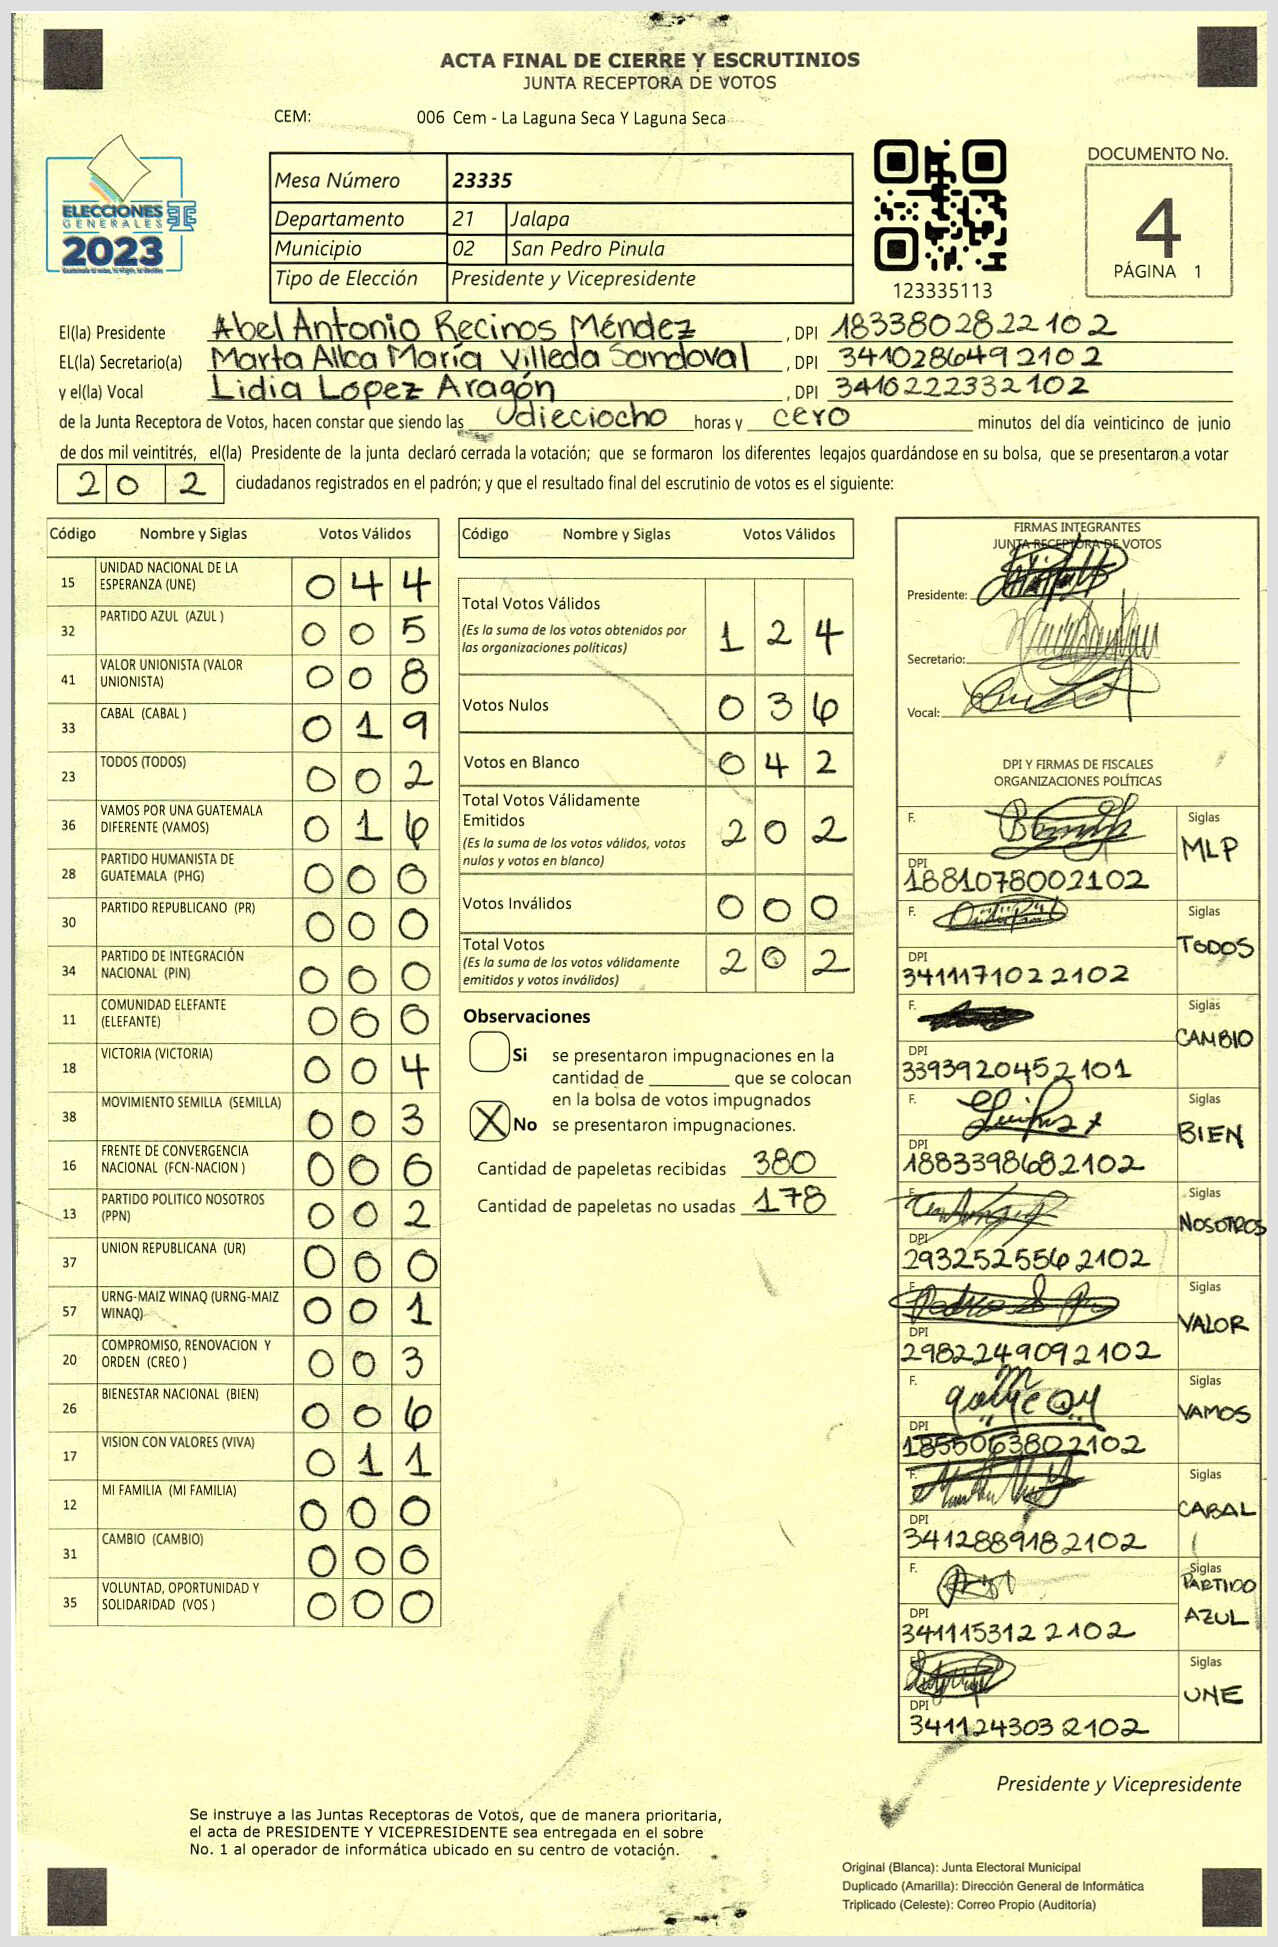 ACTA FINAL DE CIERRE Y ESCRUTINIOS
JUNTA RECEPTORA DE VOTOS
CEM: 006 Cem - La Laguna Seca Y Laguna Seca
ELECCIONES
GENERALES
2023
Mesa Número 23335
Departamento 21 Jalapa
Municipio 02 San Pedro Pinula
Tipo de Elección Presidente y Vicepresidente
123335113
DOCUMENTO No.
4
PÁGINA 1
El(la) Presidente Abel Antonio Recinos Méndez, DPI 1833802822102
EL(la) Secretario(a) Marta Alica María Villeda Sandoval, DPI 3410286492102
y el(la) Vocal Lidia Lopez Aragón, DPI 3410222332102
de la Junta Receptora de Votos, hacen constar que siendo las dieciocho horas y cero minutos del día veinticinco de junio
de dos mil veintitrés, el(la) Presidente de la junta declaró cerrada la votación; que se formaron los diferentes legajos guardándose en su bolsa, que se presentaron a votar
202 ciudadanos registrados en el padrón; y que el resultado final del escrutinio de votos es el siguiente:
Código Nombre y Siglas Votos Válidos
15 UNIDAD NACIONAL DE LA ESPERANZA (UNE) 044
32 PARTIDO AZUL (AZUL ) 005
41 VALOR UNIONISTA (VALOR UNIONISTA) 008
33 CABAL (CABAL ) 019
23 TODOS (TODOS) 002
36 VAMOS POR UNA GUATEMALA DIFERENTE (VAMOS) 016
28 PARTIDO HUMANISTA DE GUATEMALA (PHG) 000
30 PARTIDO REPUBLICANO (PR) 000
34 PARTIDO DE INTEGRACIÓN NACIONAL (PIN) 000
11 COMUNIDAD ELEFANTE (ELEFANTE) 000
18 VICTORIA (VICTORIA) 004
38 MOVIMIENTO SEMILLA (SEMILLA) 003
16 FRENTE DE CONVERGENCIA NACIONAL (FCN-NACION ) 000
13 PARTIDO POLITICO NOSOTROS (PPN) 002
37 UNION REPUBLICANA (UR) 000
57 URNG-MAIZ WINAQ (URNG-MAIZ WINAQ) 001
20 COMPROMISO, RENOVACION Y ORDEN (CREO ) 003
26 BIENESTAR NACIONAL (BIEN) 006
17 VISION CON VALORES (VIVA) 011
12 MI FAMILIA (MI FAMILIA) 000
31 CAMBIO (CAMBIO) 000
35 VOLUNTAD, OPORTUNIDAD Y SOLIDARIDAD (VOS ) 000
Código Nombre y Siglas Votos Válidos
Total Votos Válidos
(Es la suma de los votos obtenidos por las organizaciones políticas) 124
Votos Nulos 036
Votos en Blanco 042
Total Votos Válidamente Emitidos
(Es la suma de los votos válidos, votos nulos y votos en blanco) 202
Votos Inválidos 000
Total Votos
(Es la suma de los votos válidamente emitidos y votos inválidos) 202
Observaciones
Si se presentaron impugnaciones en la
cantidad de ________ que se colocan
en la bolsa de votos impugnados
X No se presentaron impugnaciones.
Cantidad de papeletas recibidas 380
Cantidad de papeletas no usadas 178
FIRMAS INTEGRANTES
JUNTA RECEPTORA DE VOTOS
Presidente:
Secretario:
Vocal:
DPI Y FIRMAS DE FISCALES
ORGANIZACIONES POLÍTICAS
F. Siglas MLP
DPI 1881078002102
F. Siglas TODOS
DPI 3411171022102
F. Siglas CAMBIO
DPI 3393920452101
F. Siglas BIEN
DPI 1883398682102
F. Siglas NOSOTROS
DPI 2932525562102
F. Siglas VALOR
DPI 2982249092102
F. Siglas VAMOS
DPI 1855063802102
F. Siglas CABAL
DPI 3412889182102
F. Siglas PARTIDO AZUL
DPI 3411153122102
Siglas UNE
DPI 3411243032102
Presidente y Vicepresidente
Se instruye a las Juntas Receptoras de Votos, que de manera prioritaria,
el acta de PRESIDENTE Y VICEPRESIDENTE sea entregada en el sobre
No. 1 al operador de informática ubicado en su centro de votación.
Original (Blanca): Junta Electoral Municipal
Duplicado (Amarilla): Dirección General de Informática
Triplicado (Celeste): Correo Propio (Auditoría)